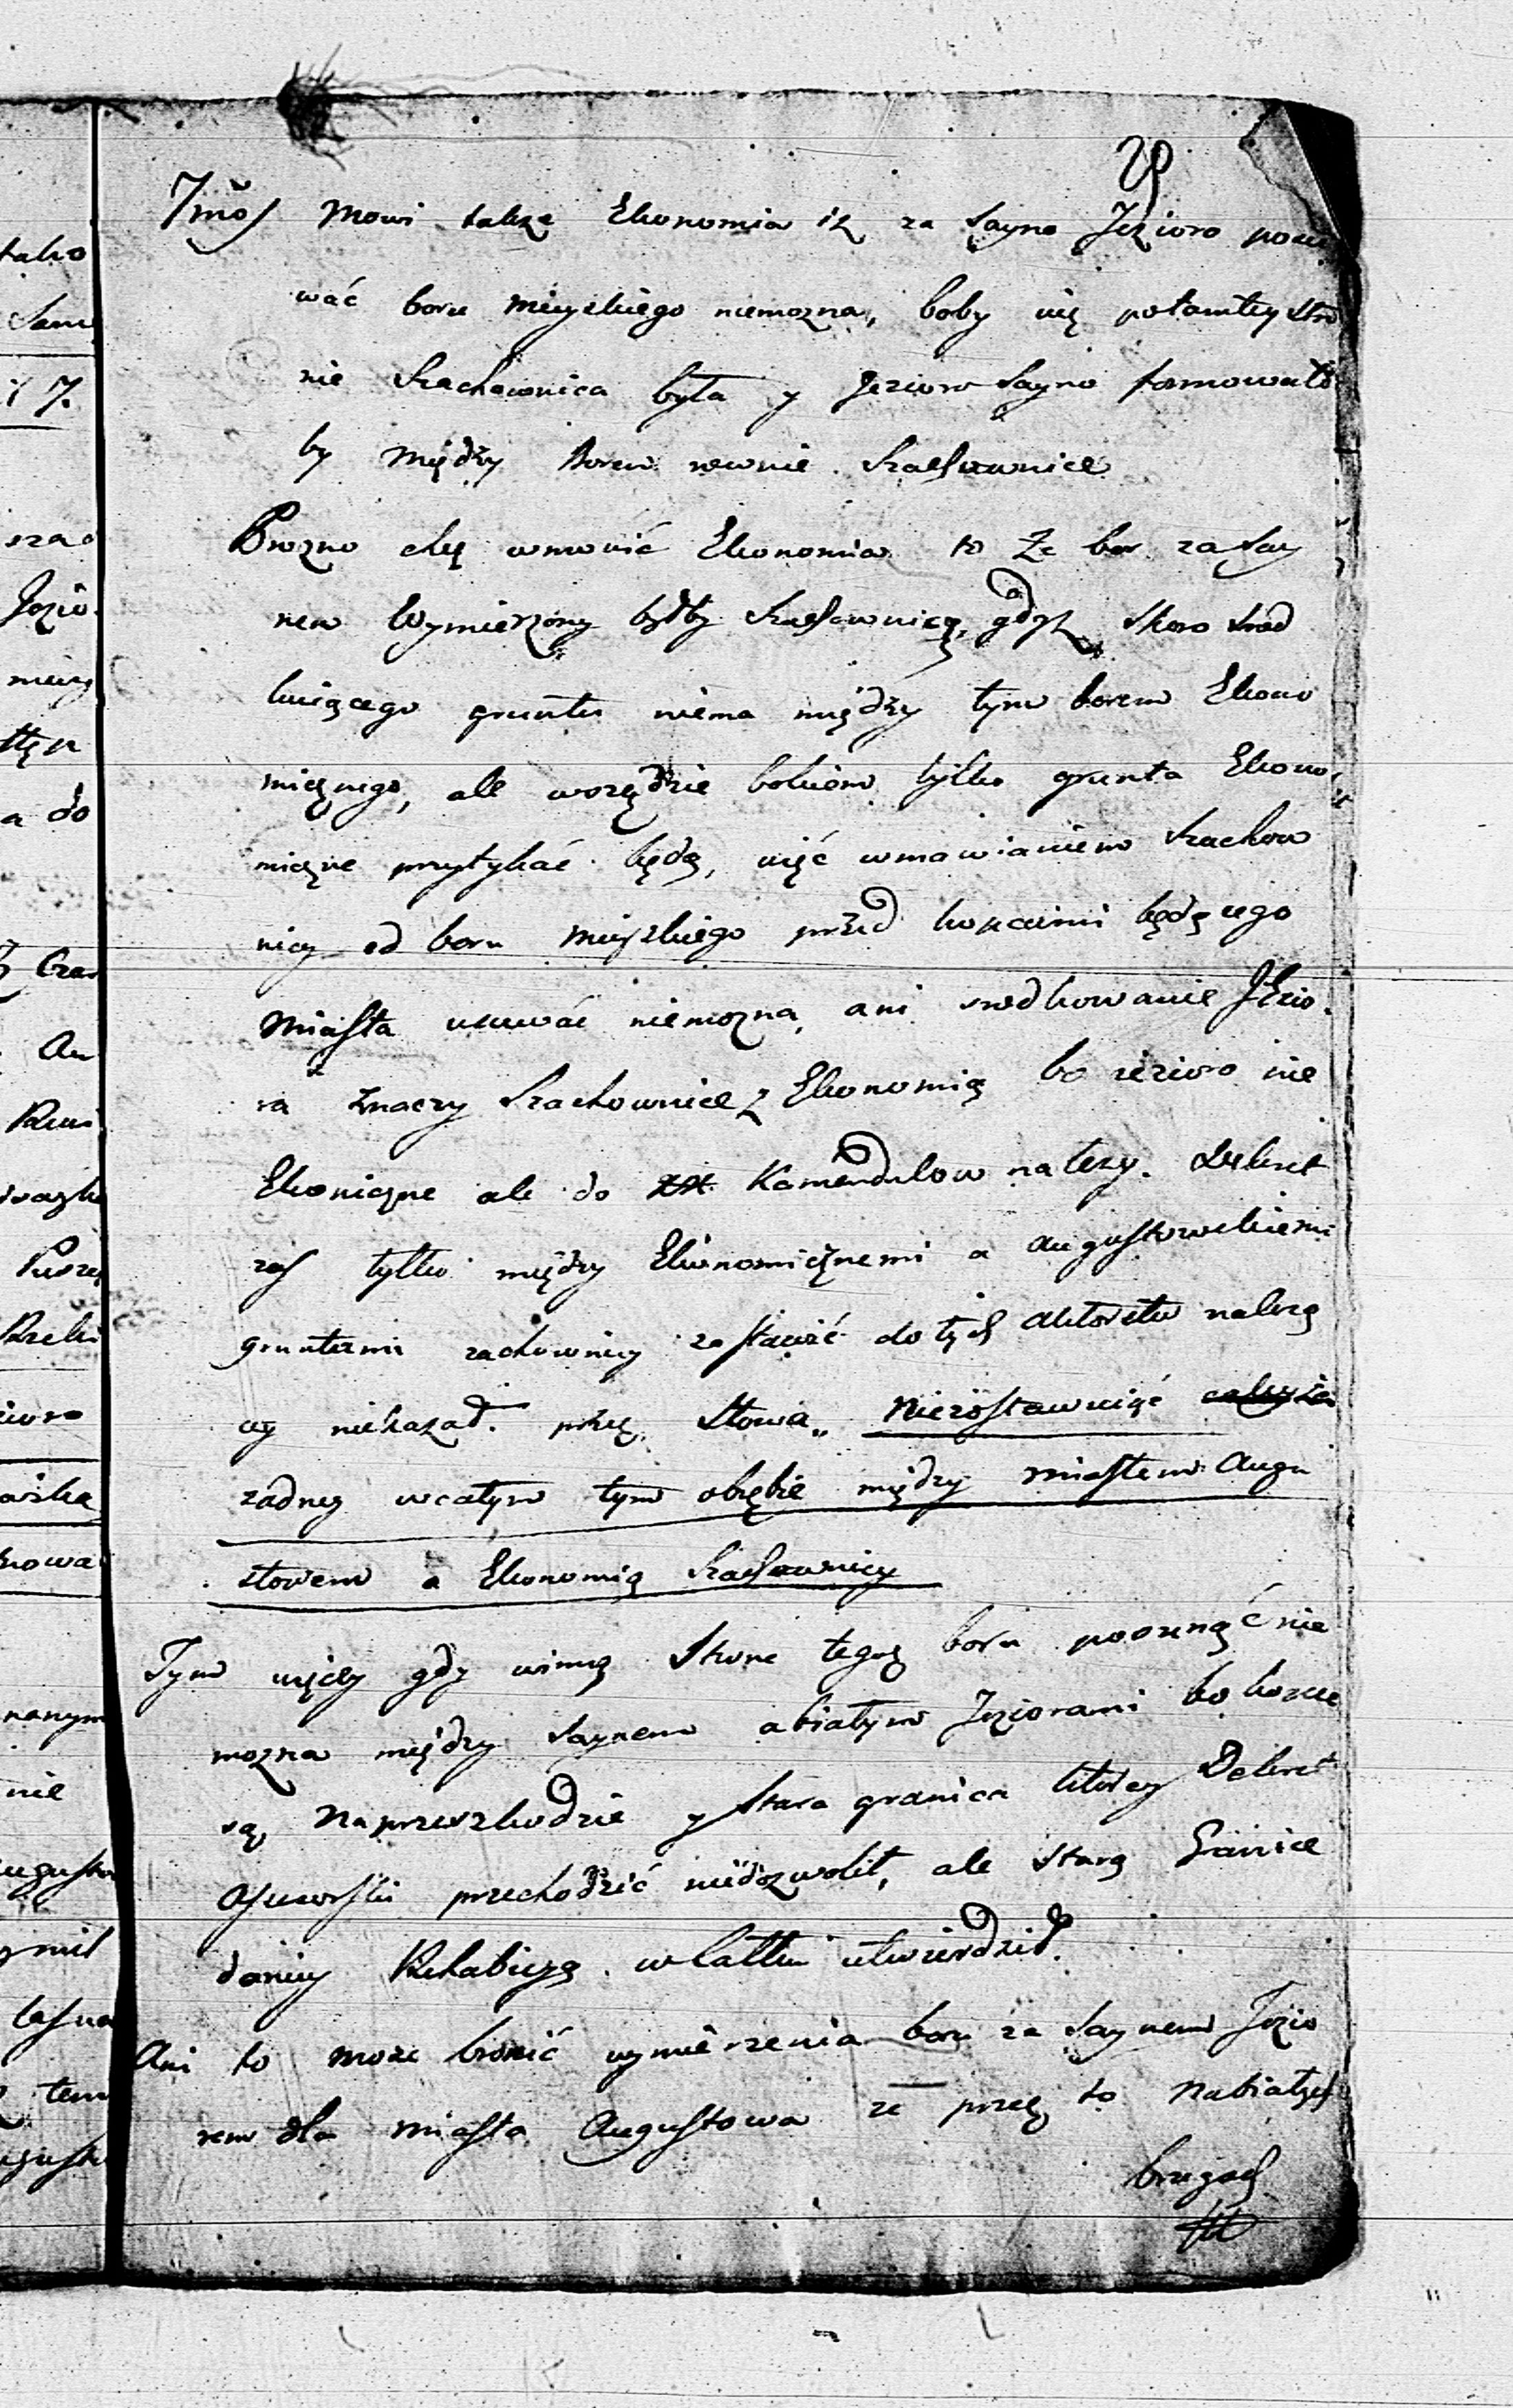 tako
Sam
17.
Jezio
a do
Czas
Au
nie
tem
7mo Mowi takze Ekonomia iz za Sayno Jezioro posu
wać boru mieyskiego niemozna, boby się potamtey stro
nie Szachownica była y Jezioro Sayno formowało
by między Borem rownie Szachownice
Prozno chcę wmowić Ekonomia to Ze bor za Say
nem Wymierzony byłby Szachownicą, gdyz skoro srod
kuiącego gruntu niema między tym borem Ekono
micznego, ale wszędzie bokiem tylko grunta Ekono
miczne przytykać będą, więc wmawianiem Szachow
nicy od boru mieyskiego przed koncami będącego
Miasta usuwać niemozna, ani srodkowanie Jezio
ra znaczy Szachownice z Ekonomią bo iezioro nie
Ekoniczne ale do XX. Kamendulow nalezy. Dekret
zas tylko między Ekonomicznemi a augustowskiemi
gruntami zachownicy zostawić do tych aktorstw nalezą
cy niekazał. przez słowa„ Niezostawuiąć
zadney wcałym tym obrębie między miastem Augu
stowem a Ekonomią Szachownicy
Tym więcey gdy winną strone tegoz boru posunąć nie
mozna między Saynem abiałym Jeziorami bo kopce
są naprzeszkodzie y stara granica ktorey Dekret
Assessorski przechodzić niedozwolił, ale starą Granice
daniey Rehabiczą wcałku utwierdził.
Ani to może bronić wymierzenia boru za Saynem Jezio
rem dla miasta Augustowa ze przez to Nabiałych
brzegach